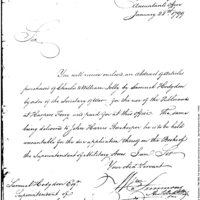 Accountant's Office
January 28th 1799
Sir,
You will receive enclosed an abstract of articles
purchased of Charles & William Sills by Samuel Hodgdon
by order of the Secretary of War, for the use of the
at Harpers Ferry and paid for at this office. The same
being delivered to John Harris Storekeeper he is to be held
accountable for the due application thereof on the Books of
the Superintendent of Military Stores I am Sir
Your Obed Servant
Wm Simmons
Samuel Hodgdon Esqr
Superintendent of